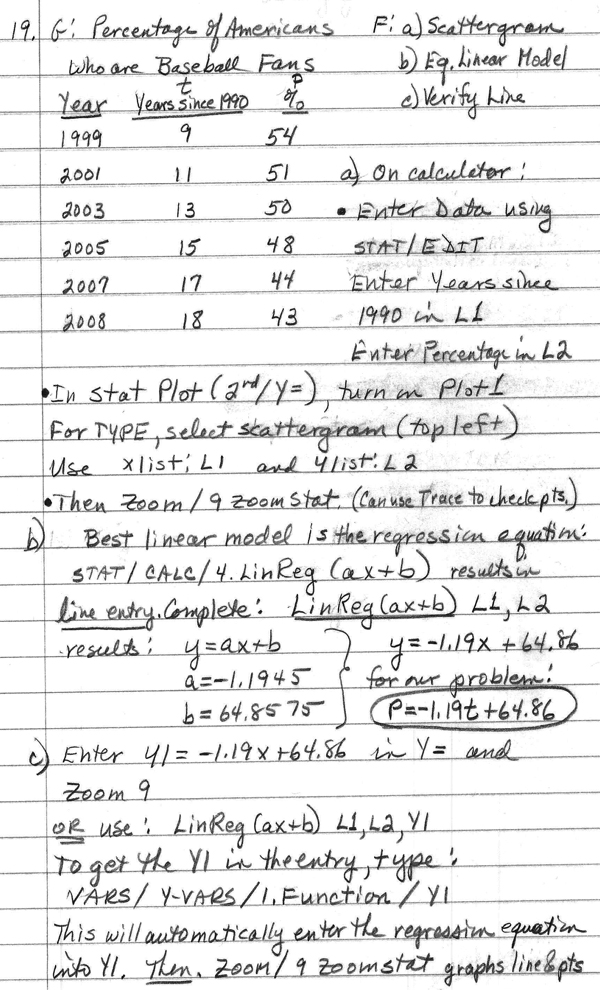 19. G: Percentage of Americans F: a) Scattergram
Who are Baseball Fans b) Eq. Linear Model
t P c) Verify Line
Year Years since 1990 %
1999 9 54
2001 11 51 a) On calculator:
2003 13 50 • Enter Data using
2005 15 48 STAT/EDIT
2007 17 44 Enter Years since
2008 18 43 1990 in L1
Enter Percentage in L2
• In Stat Plot (2nd/Y=), turn on Plot 1
For TYPE, select skattergram (top left)
Use xlist: L1 and ylist: L2
• Then Zoom / 9 ZoomStat. (Can use Trace to check pts.)
b) Best linear model is the regression equation:
STAT / CALC / 4. LinReg (ax+b) results in
line entry. Complete: LinReg(ax+b) L1, L2
results: y=ax+b } y=-1.19x+64.86
a=-1.1945 for our problem:
b=64.8575 P=-1.19t+64.86
c) Enter Y1 = -1.19x+64.86 in Y= and
Zoom 9
OR use: LinReg(ax+b) L1, L2, Y1
To get the Y1 in the entry, type:
VARS / Y-VARS / 1. Function / Y1
This will automatically enter the regression equation
into Y1. Then, Zoom / 9 Zoomstat graphs line & pts